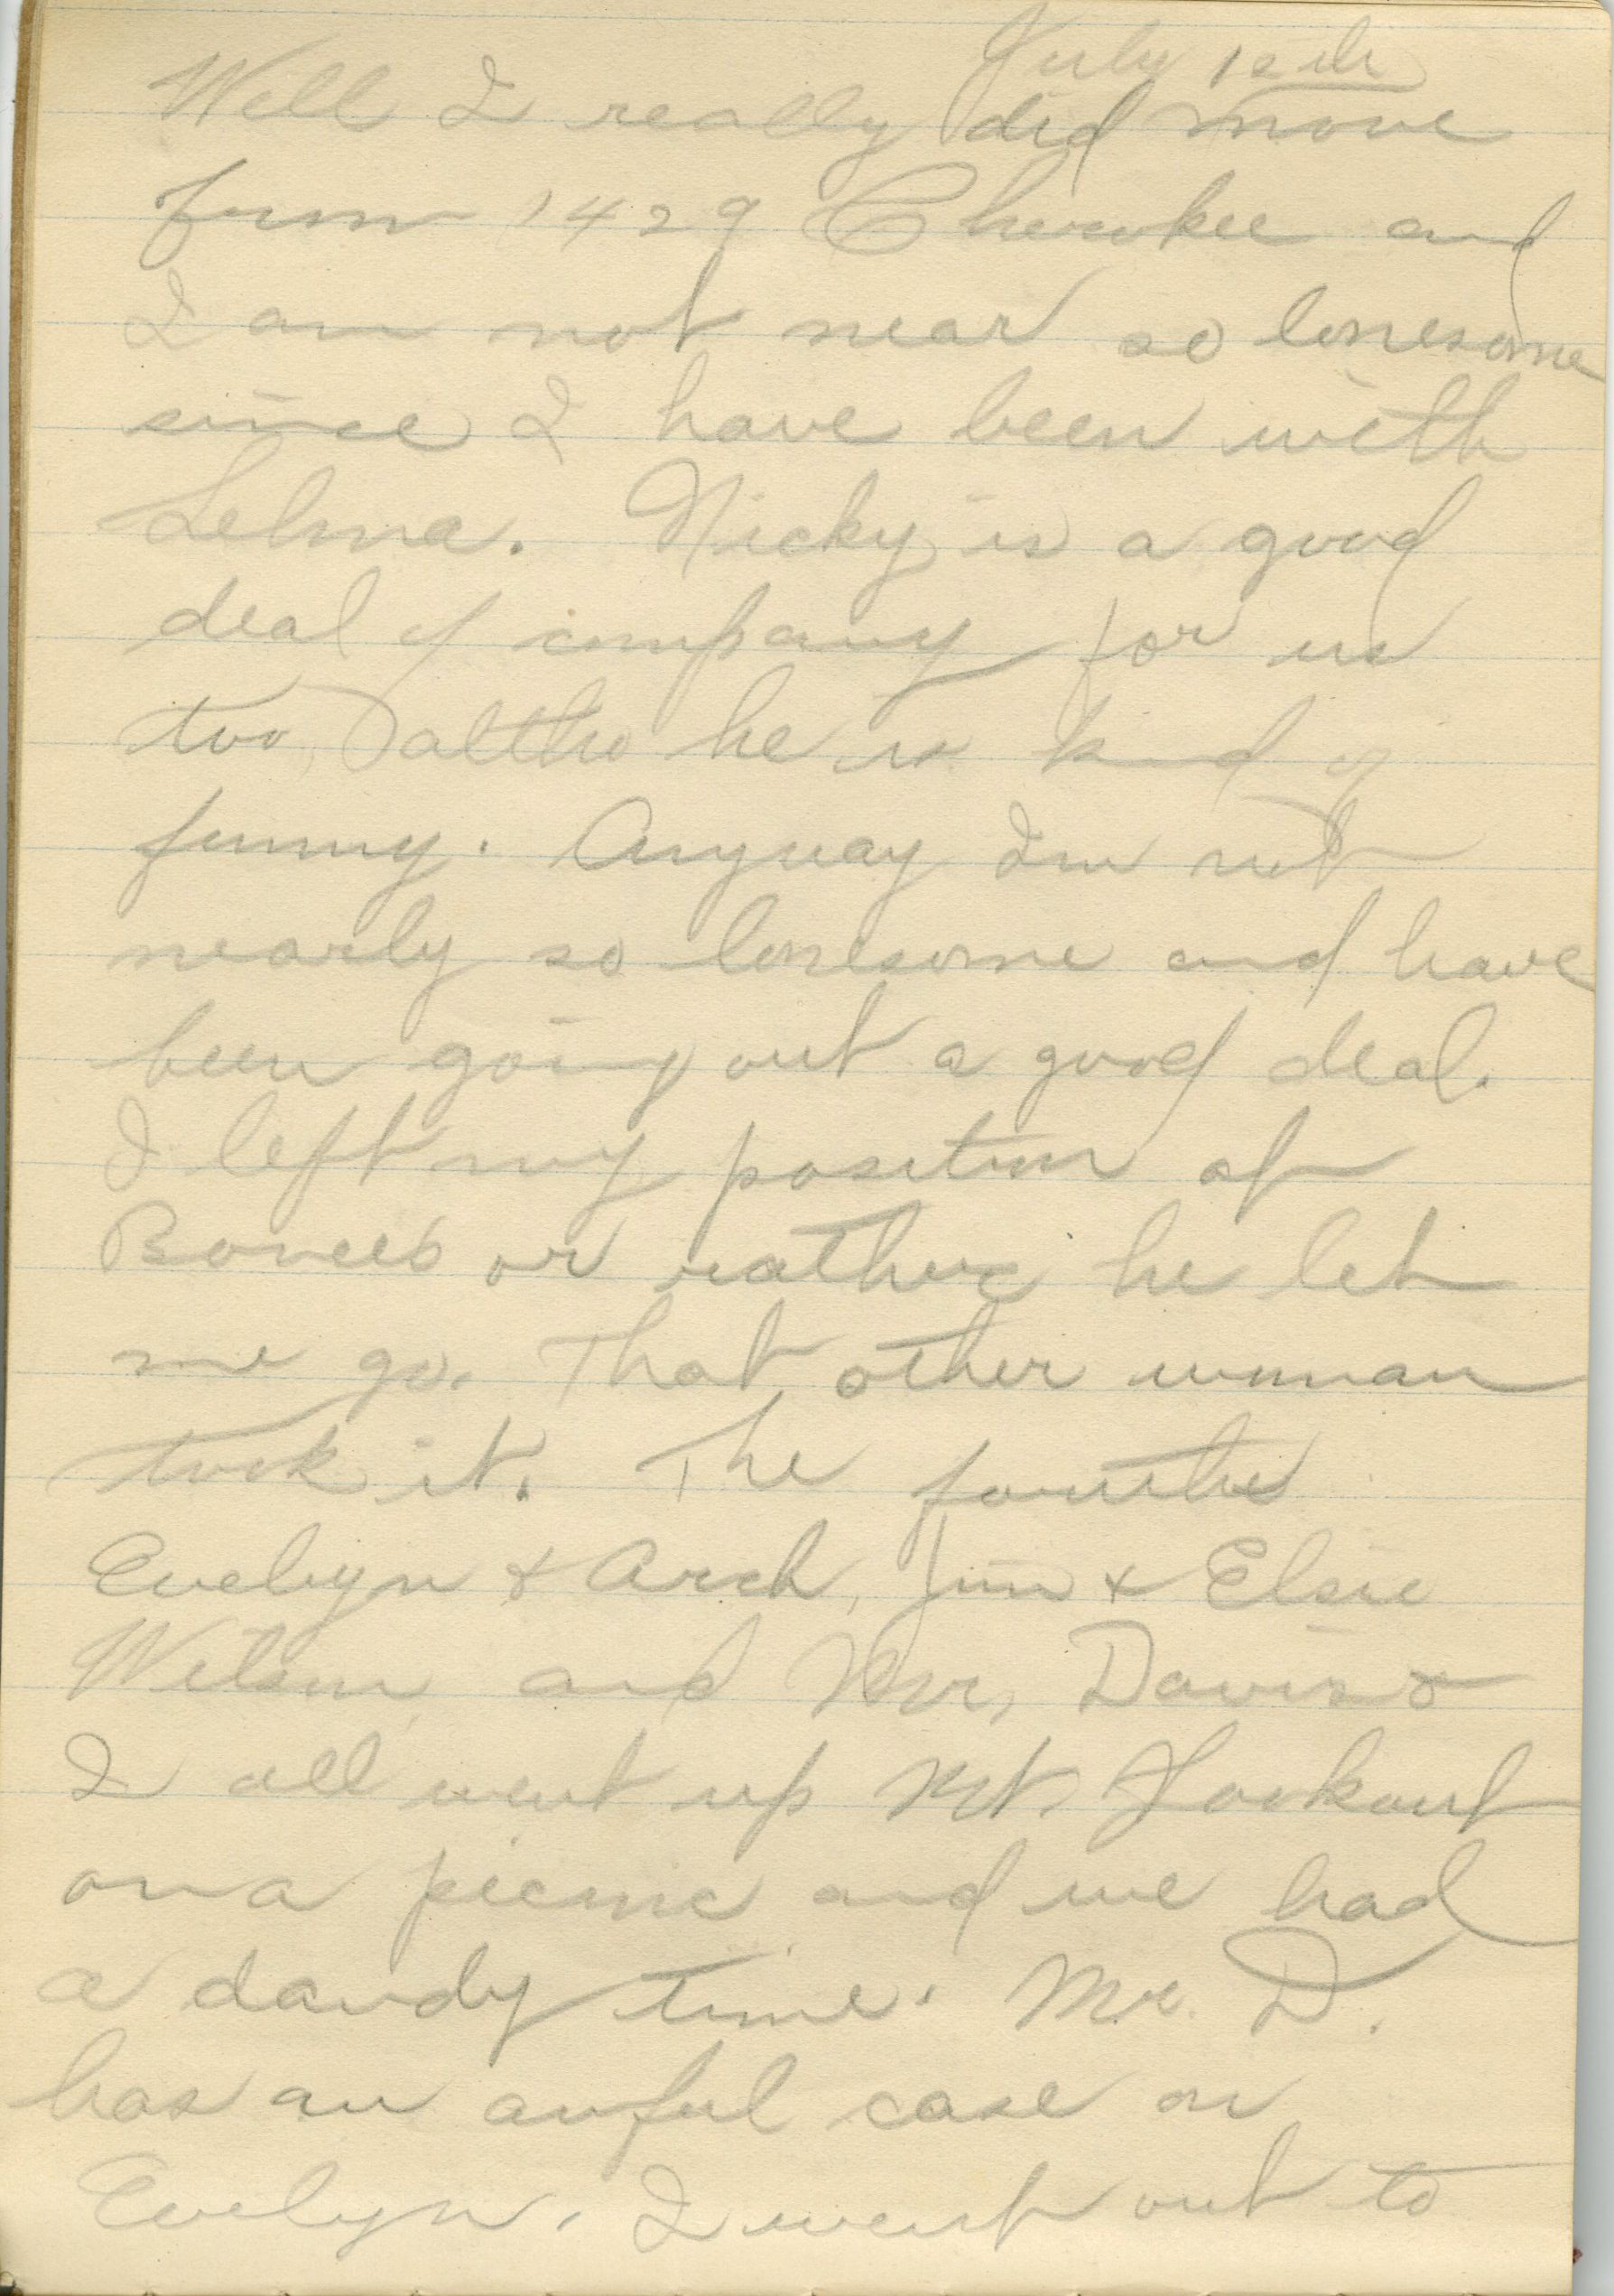 July 12th
Well I really did move
from 1429 Cherokee and
I am not near so lonesome
since I have been with
Selma. Nicky is a good
deal of company for us
too, altho he is kind of
funny. Anyway Im not
nearly so lonesome and have
been going out a good deal.
I left my position at
or rather he let
me go. That other woman
took it. The fourth
Evelyn & Arch, Jim & Elsie
Wilson and Mr. Davis &
I all went up Mt. Lookout
on a picnic and we had
a dandy time. Mr. D.
has an awful case on
Evelyn. I went out to